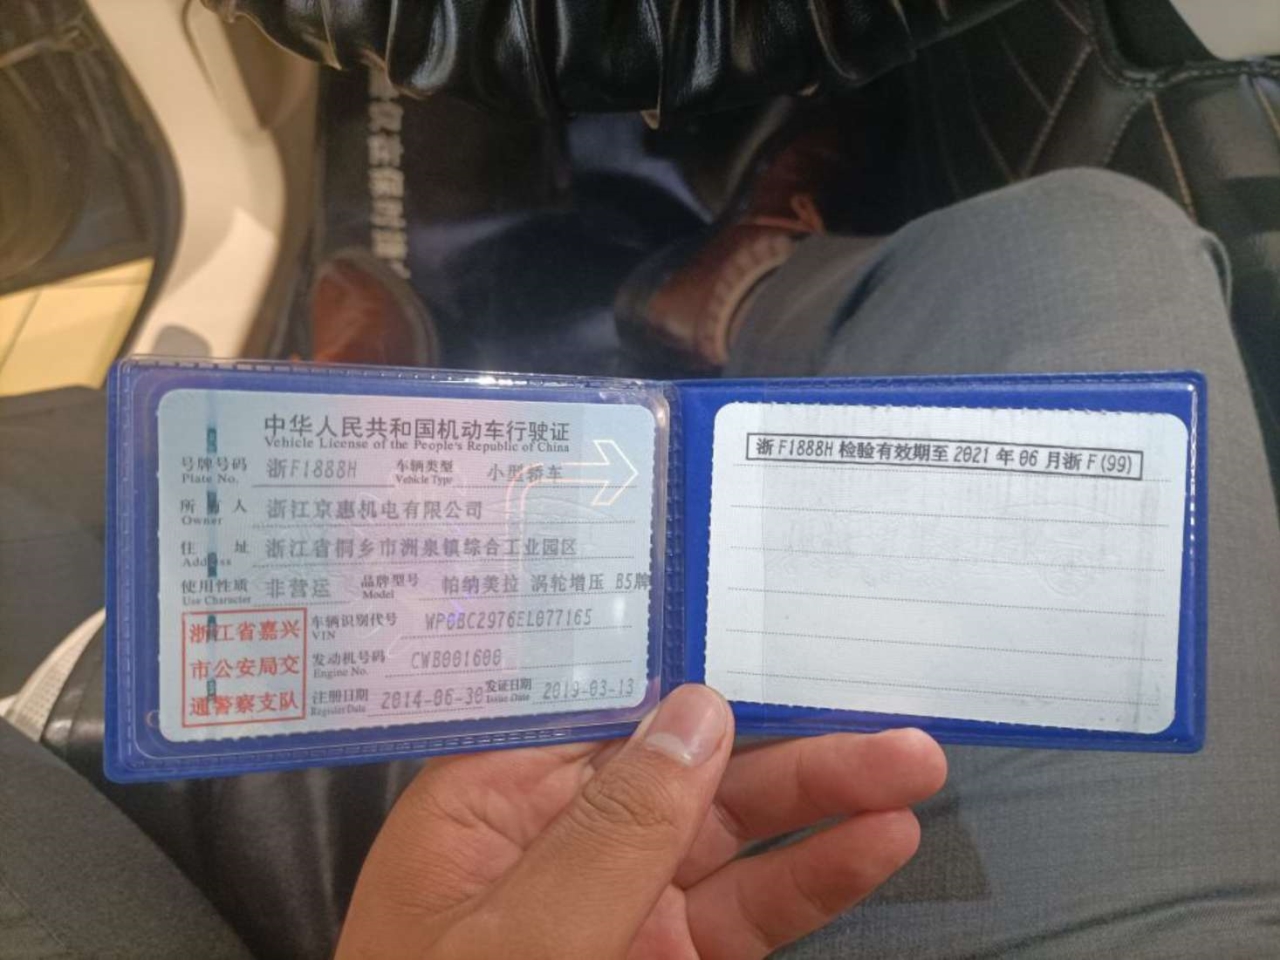 中华人民共和国机动车行驶证
Vehicle License of the People's Republic of China
号牌号码 浙F1888H 车辆类型 小型轿车
Plate No. Vehicle Type
所有人 浙江京惠机电有限公司
Owner
住址 浙江省桐乡市洲泉镇综合工业园区
Address
使用性质 非营运 品牌型号 帕纳美拉 涡轮增压 B5牌
Use Character Model
浙江省嘉兴
市公安局交
通警察支队
车辆识别代号 WP0BC2976EL077165
VIN
发动机号码 CWB001600
Engine No.
注册日期 2014-06-30 发证日期 2019-03-13
Register Date Issue Date
浙F1888H 检验有效期至 2021 年 06 月浙 F(99)